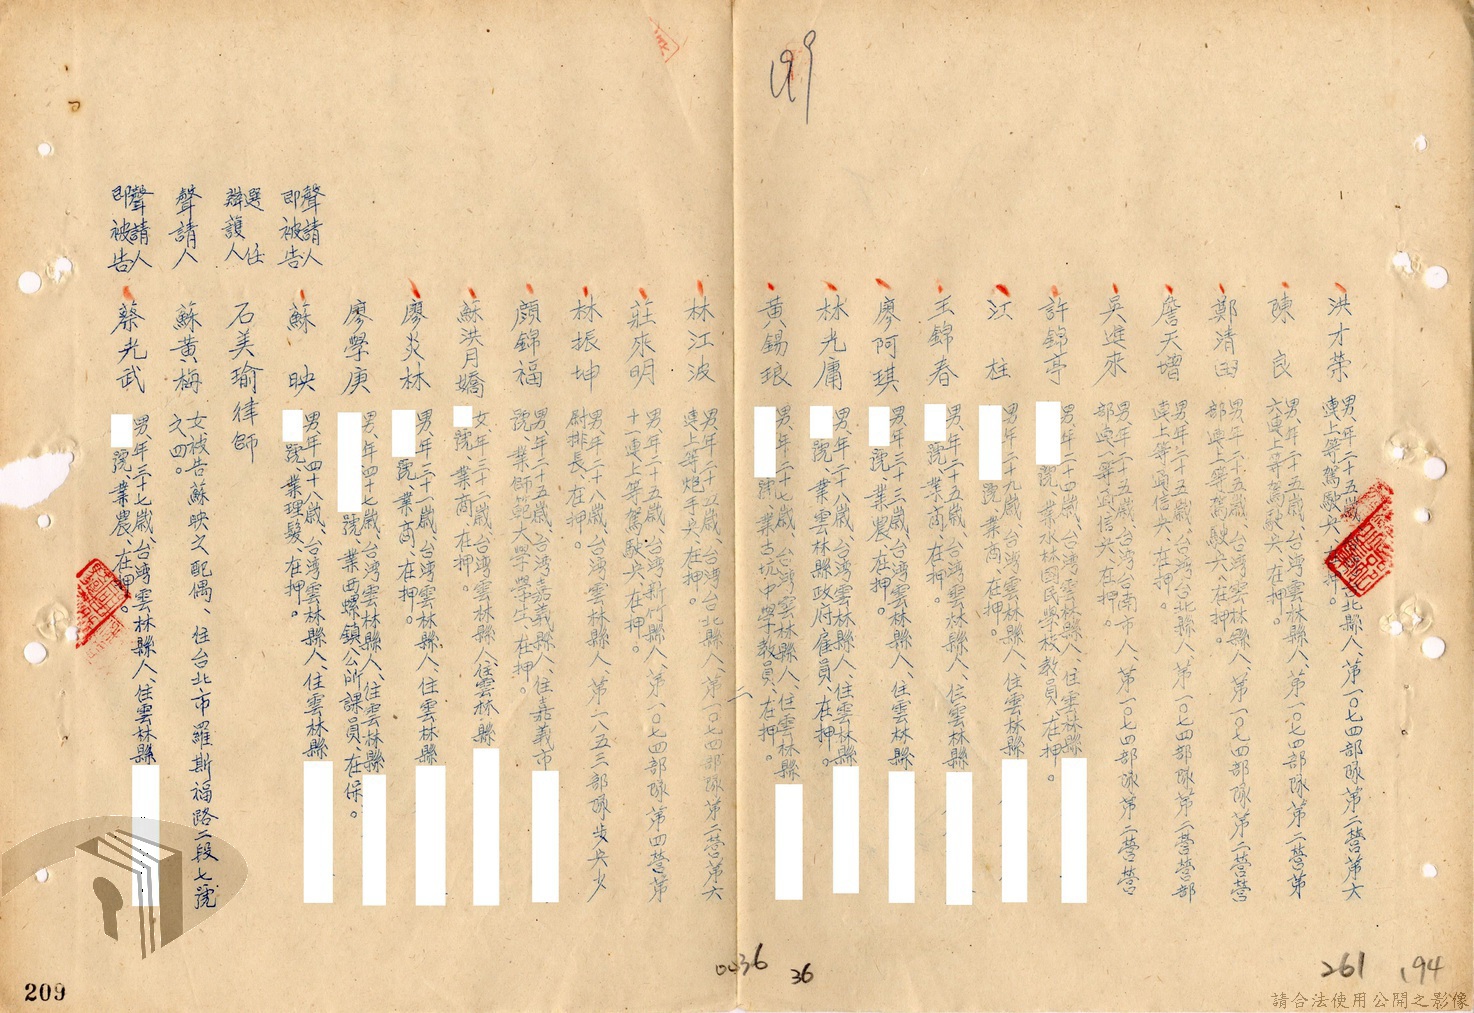 199
洪才榮 男、年二十五歲、台灣台北縣人、第一〇七四部隊第二營第六
連上等駕駛兵、在押。
陳良 男、年二十五歲、台灣雲林縣人、第一〇七四部隊第二營第
六連上等駕駛兵、在押。
鄭清田 男、年二十五歲、台灣雲林縣人、第一〇七四部隊第二營營
部連上等駕駛兵、在押。
詹天增 男、年二十五歲、台灣台北縣人、第一〇七四部隊第二營營部
連上等通信兵、在押。
吳進來 男、年二十五歲、台灣台南市人、第一〇七四部隊第二營營
部連一等通信兵、在押。
許錦亭 男、年二十四歲、台灣雲林縣人、住雲林縣
號、業水林國民學校教員、在押。
江柱 男、年二十九歲、台灣雲林縣人、住雲林縣
號、業商、在押。
王錦春 男、年二十五歲、台灣雲林縣人、住雲林縣
號、業商、在押。
廖阿琪 男、年三十三歲、台灣雲林縣人、住雲林縣
號、業農、在押。
林光庸 男、年二十八歲、台灣雲林縣人、住雲林縣
號、業雲林縣政府雇員、在押。
黃錫琅 男、年二十七歲、台灣雲林縣人、住雲林縣
號、業古坑中學教員、在押。
二
林江波 男、年二十五歲、台灣台北縣人、第一〇七四部隊第二營第六
連上等炮手兵、在押。
莊來明 男、年二十五歲、台灣新竹縣人、第一〇七四部隊第四營第
十一連上等駕駛兵、在押。
林振坤 男、年二十八歲、台灣雲林縣人、第一八五三部隊步兵少
尉排長、在押。
顏錦福 男、年二十五歲、台灣嘉義縣人、住嘉義市
號、業師範大學學生、在押。
蘇洪月嬌 女、年三十二歲、台灣雲林縣人、住雲林縣
號、業商、在押。
廖炎林 男、年三十一歲、台灣雲林縣人、住雲林縣
號、業商、在押。
廖學庚 男、年四十七歲、台灣雲林縣人、住雲林縣
號、業西螺鎮公所課員、在保。
聲請人
即被告 蘇映 男、年四十八歲、台灣雲林縣人、住雲林縣
號、業理髮、在押。
選任
辯護人 石美瑜律師
聲請人 蘇黃梅 女、被告蘇映之配偶、住台北市羅斯福路二段七號
之四。
聲請人
即被告 蔡光武 男、年三十七歲、台灣雲林縣人、住雲林縣
號、業農、在押。
0036
36
261
194
209
請合法使用公開之影像